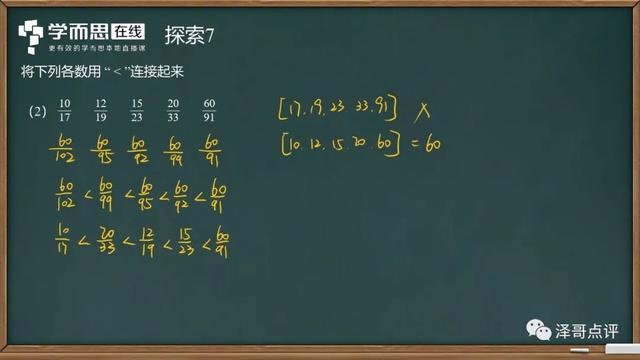 学而思在线 探索7
更有效的学而思本地直播课
将下列各数用“<”连接起来
(2) 10/17 12/19 15/23 20/33 60/91 [17.19.23 33.91] ×
60/102 60/95 60/92 60/99 60/91 [10.12.15.20.60] = 60
60/102 < 60/99 < 60/95 < 60/92 < 60/91
10/17 < 20/33 < 12/19 < 15/23 < 60/91
泽哥点评